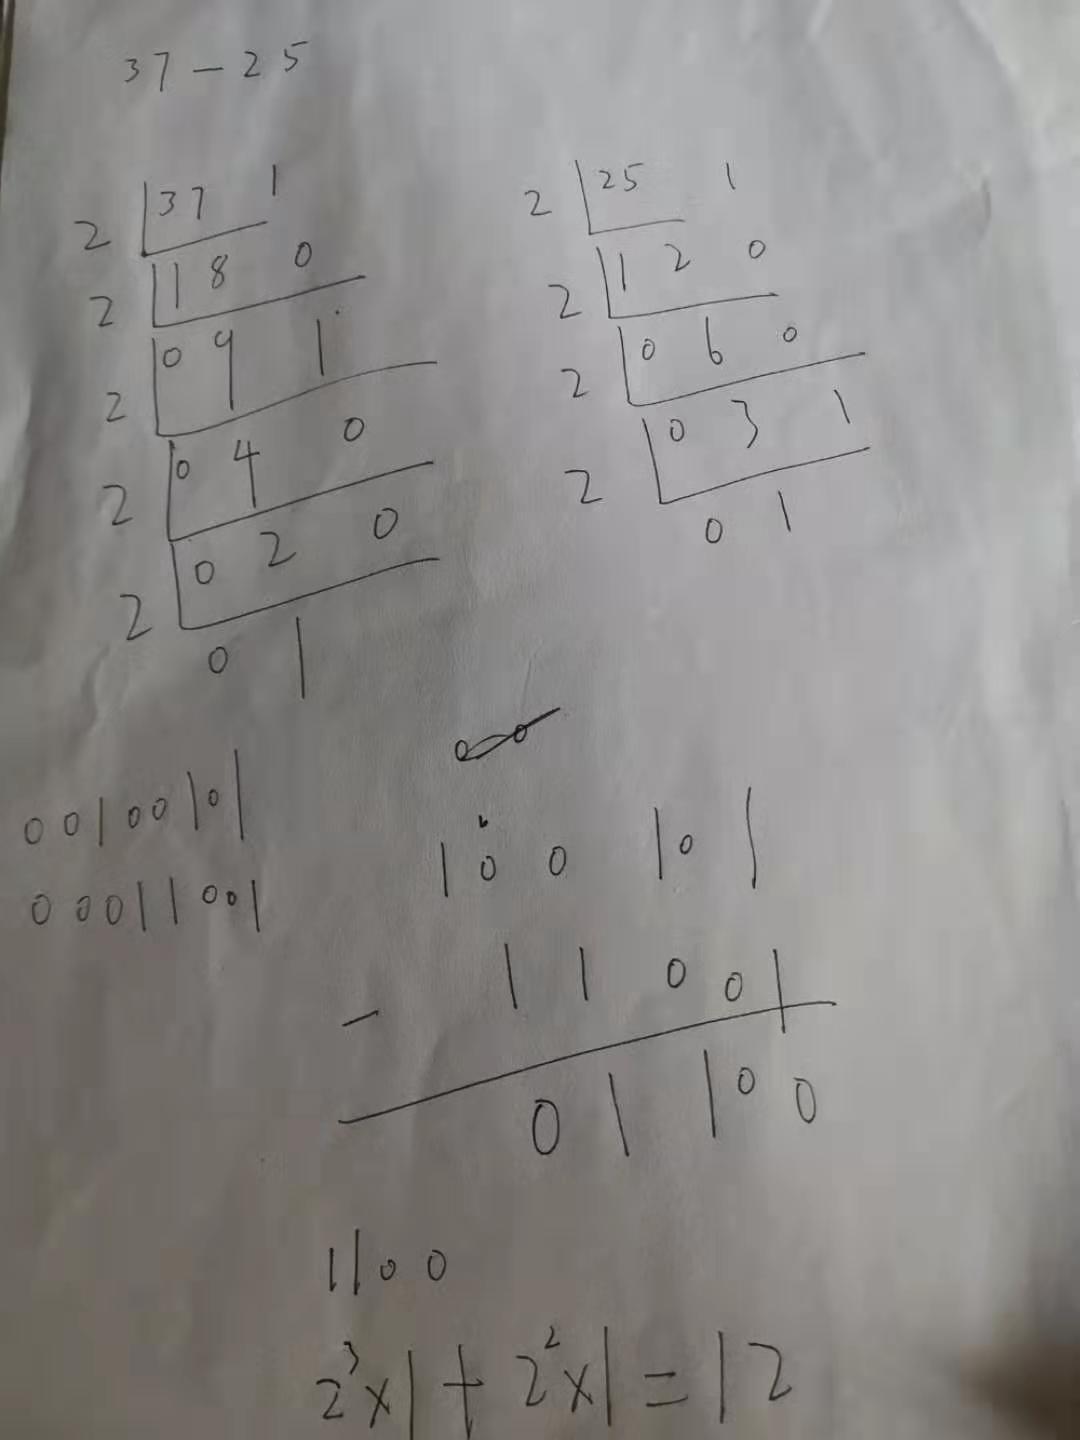 37-25
2 37 1
2 18 0
2 09 1
2 04 0
2 02 0
01
2 25 1
2 12 0
2 06 0
2 03 1
01
00100101
00011001
100101
- 11001
01100
1100
2³×1+2²×1=12